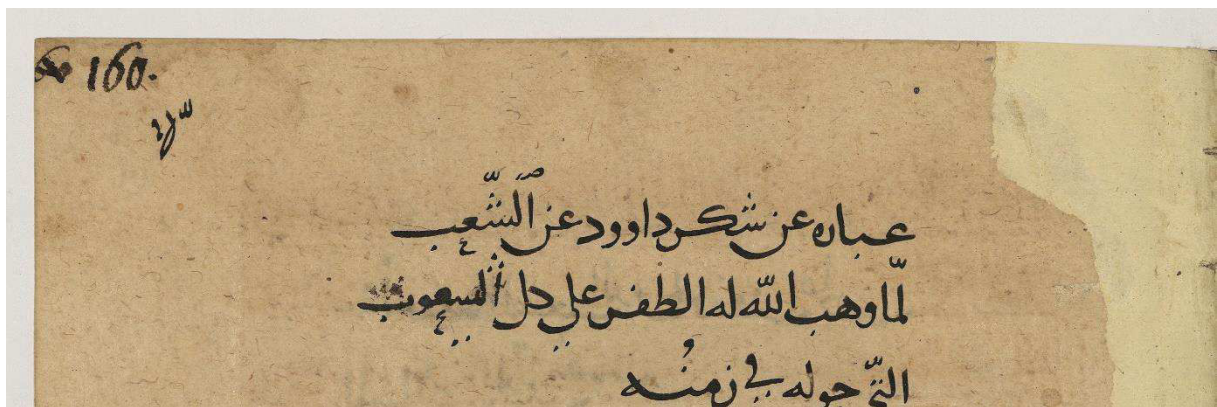 160.
عباره عن شكر داوود عن الشّعب
لمّا وهب اللّه له الطفر علي كل الشعوب
التّي حوله في زمنُه